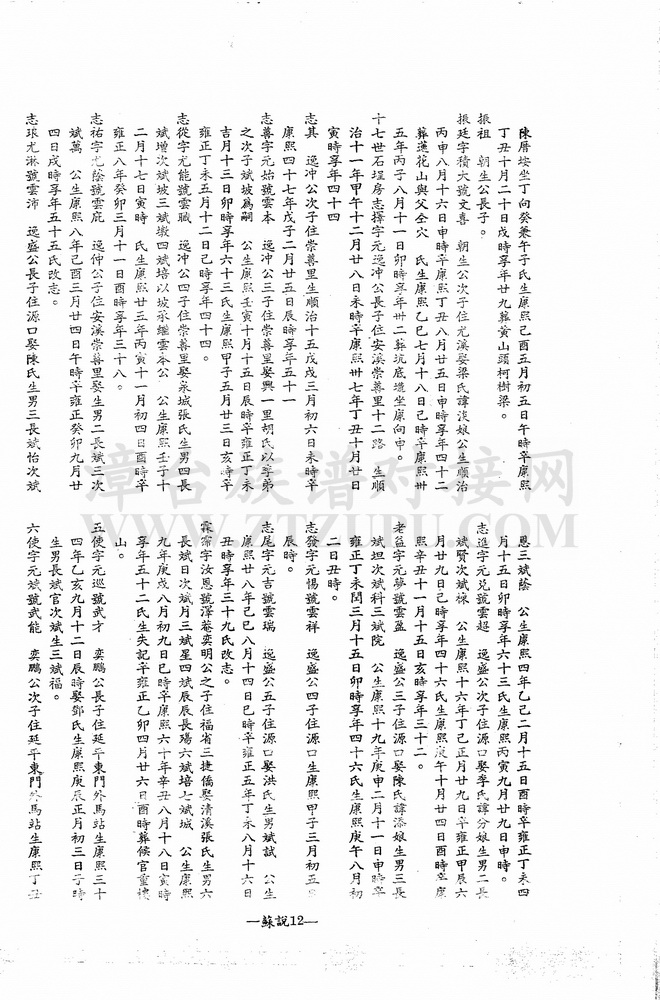 陳厝垵坐丁向癸兼午子氏生康熙己酉五月初五日午時卒康熙
丁丑十月二十日戌時享年廿九葬黃山頭柯樹梁。
振祖 朝生公長子。
振廷字積大號文喜 朝生公次子住尤溪娶梁氏諱淡娘公生順治
丙申八月十六日申時卒康熙丁丑八月廿五日申時享年四十二
葬蓮花山與父仝穴 氏生康熙乙巳七月十八日己時卒康熙卅
五年丙子八月十一日卯時享年卅二葬坑底墘坐庚向申。
十七世石埕房志擇字元 逸冲公長子住安溪崇善里十二路 生順
治十一年甲午十二月廿八日未時卒康熙卅七年丁丑十月廿日
寅時享年四十四
志其 逸冲公次子住崇善里生順治十五戊戌三月初六日未時卒
康熙四十七年戊子二月廿五日辰時享年五十一
志善字元始號雲本 逸冲公三子住崇善里娶興一里胡氏以季弟
之次子斌坡爲嗣 公生康熙壬寅十月十五日辰時卒雍正丁未
吉月十三日卯時享年六十三氏生康熙甲子五月廿三日亥時卒
雍正丁未五月十二日己時享年四十四。
志從字尤能號雲職 逸冲公四子住崇善里娶泉城張氏生男四長
斌增次斌坡三斌墩四斌培以坡承繼雲本公 公生康熙壬子十
二月十七日寅時 氏生康熙廿五年丙寅十一月初四日酉時卒
雍正八年癸卯三月十一日酉時享年三十八。
志祐字尤蔭號雲庇 逸仲公子住安溪崇善里娶生男二長斌三次
斌萬 公生康熙八年己酉三月廿四日午時卒雍正癸卯九月廿
四日戌時享年五十五氏改志。
志琅尤淋號雲沛 逸盛公長子住源口娶陳氏生男三長斌怡次斌
恩三斌蔭 公生康熙四年乙巳二月十五日酉時卒雍正丁未四
月十五日卯時享年六十三氏生康熙丙寅九月廿九日申時。
志進字元兌號雲超 逸盛公次子住源口娶李氏諱分娘生男二長
斌賢次斌祿 公生康熙十六年丁己正月廿九日卒雍正甲辰六
月廿九日己時享年四十六氏生康熙庚午十月廿四日酉時卒康
熙辛丑十一月十五日亥時享年三十二。
老益字元夢號雲盈 逸盛公三子住源口娶陳氏諱添娘生男三長
斌坦次斌科三斌院 公生康熙十九年庚申二月十一日申時卒
雍正丁未閏三月十五日卯時享年四十六氏生康熙庚午八月初
二日丑時。
志發字元惕號雲祥 逸盛公四子住源口生康熙甲子三月初五日
辰時。
志尾字元吉號雲瑞 逸盛公五子住源口娶洪氏生男斌試 公生
康熙廿八年己巳八月十四日已時卒雍正五年丁未八月十六日
丑時享年三十九氏改志。
霖霈字汝恩號澤菴奕明公之子住福省三捷僑娶清溪張氏生男六
長斌日次斌月三斌星四斌辰辰長殤六斌培七斌城 公生康熙
九年庚戌八月初九日巳時卒康熙六十年辛丑八月十八日寅時
享年五十二氏生失記卒雍正乙卯四月廿六日酉時葬候官重樓
山。
五使字元巡號武才 奕鵬公長子住延平東門外馬站生康熙三十
四年乙亥九月十二日辰時娶鄧氏生康熙庚辰正月初三日子時
生男長斌官次斌生三斌福。
六使字元斌號武能 奕鵬公次子住延平東門外馬站生康熙丁丑
—蘇說12—
章台族谱对接网
WWW.ZTZUPU.COM